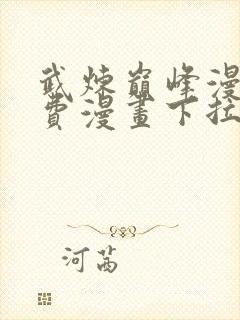 武煉巔峰漫
費漫畫下拉
河茜